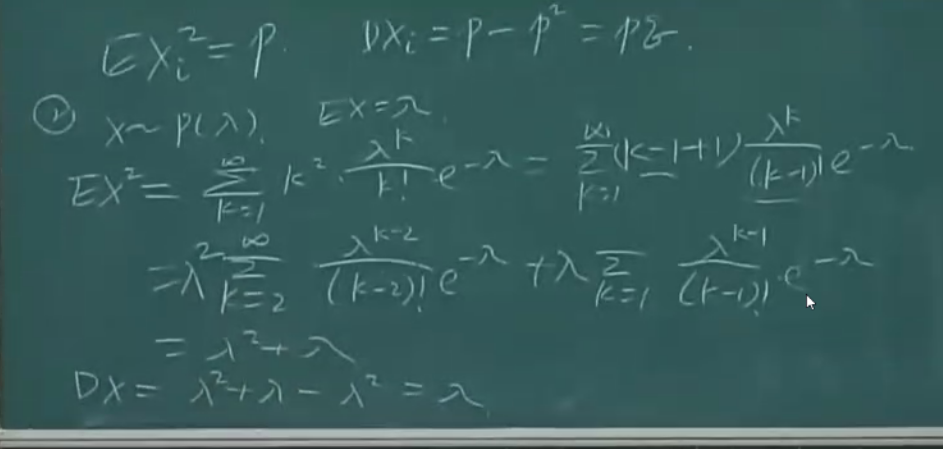 EXᵢ² = p. DXᵢ = p − p² = pq.
② X ~ P(λ). EX = λ.
EX² = ∑_{k=1}^{∞} k² · λ^k / k! · e^{−λ} = ∑_{k=1}^{∞} (k−1+1) λ^k / (k−1)! e^{−λ}
= λ² ∑_{k=2}^{∞} λ^{k−2} / (k−2)! e^{−λ} + λ ∑_{k=1} λ^{k−1} / (k−1)! · e^{−λ}
= λ² + λ
DX = λ² + λ − λ² = λ